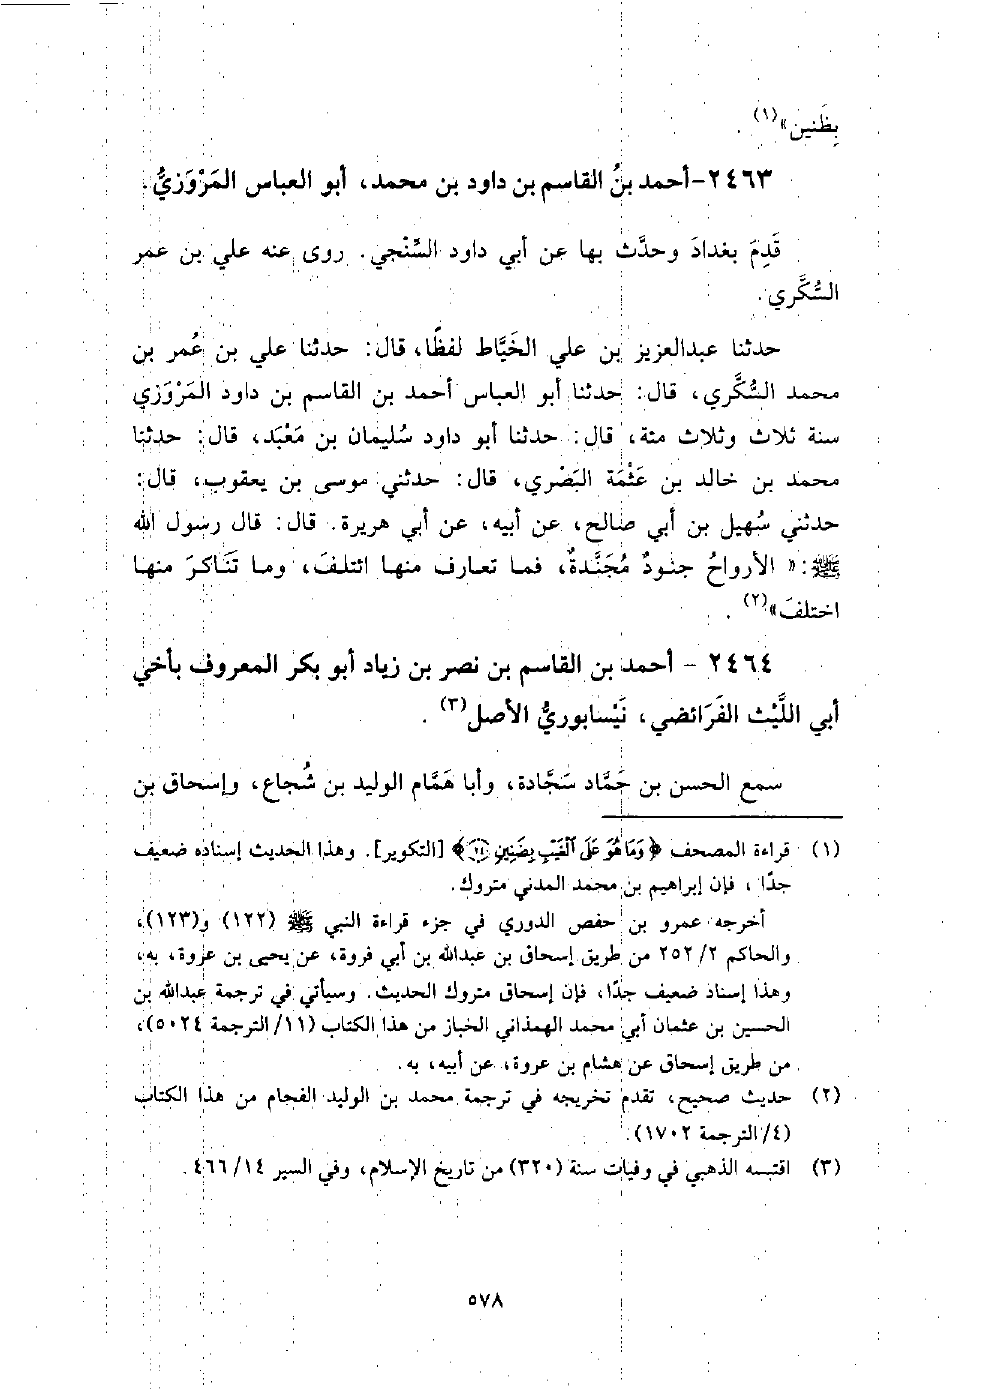 بِظَنين»(١) .
٢٤٦٣-أحمد بنُ القاسم بن داود بن محمد، أبو العباس المَرْوَزيُّ.
قَدِمَ بغدادَ وحدَّث بها عن أبي داود السِّنْجي. روى عنه علي بن عمر
السُّكَّري.
حدثنا عبدالعزيز بن علي الخَيَّاط لفظًا، قال: حدثنا علي بن عُمر بن
محمد السُّكَّري، قال: حدثنا أبو العباس أحمد بن القاسم بن داود المَرْوَزي
سنة ثلاث وثلاث مئة، قال: حدثنا أبو داود سُليمان بن مَعْبَد، قال: حدثنا
محمد بن خالد بن عَثْمَة البَصْري، قال: حدثني موسى بن يعقوب، قال:
حدثني سُهيل بن أبي صالح، عن أبيه، عن أبي هريرة. قال: قال رسول الله
ﷺ: « الأرواحُ جنودٌ مُجَنَّدةٌ، فما تعارف منها ائتلفَ، وما تَنَاكرَ منها
اختلفَ»(٢) .
٢٤٦٤ - أحمد بن القاسم بن نصر بن زياد أبو بكر المعروف بأخي
أبي اللَّيْث الفَرَائضي، نَيْسابوريُّ الأصل(٣) .
سمع الحسن بن حَمَّاد سَجَّادة، وأبا هَمَّام الوليد بن شُجاع، وإسحاق بن
(١) قراءة المصحف ﴿وَمَا هُوَ عَلَى ٱلْغَيْبِ بِضَنِينٍ ٢٤﴾ [التكوير]. وهذا الحديث إسناده ضعيف
جدًا ، فإن إبراهيم بن محمد المدني متروك.
أخرجه عمرو بن حفص الدوري في جزء قراءة النبي ﷺ (١٢٢) و(١٢٣)،
والحاكم ٢/ ٢٥٢ من طريق إسحاق بن عبدالله بن أبي فروة، عن يحيى بن عروة، به،
وهذا إسناد ضعيف جدًا، فإن إسحاق متروك الحديث. وسيأتي في ترجمة عبدالله بن
الحسين بن عثمان أبي محمد الهمذاني الخباز من هذا الكتاب (١١/ الترجمة ٥٠٢٤)،
من طريق إسحاق عن هشام بن عروة، عن أبيه، به.
(٢) حديث صحيح، تقدم تخريجه في ترجمة محمد بن الوليد الفحام من هذا الكتاب
(٤/ الترجمة ١٧٠٢).
(٣) اقتبسه الذهبي في وفيات سنة (٣٢٠) من تاريخ الإسلام، وفي السير ١٤/ ٤٦٦ .
٥٧٨